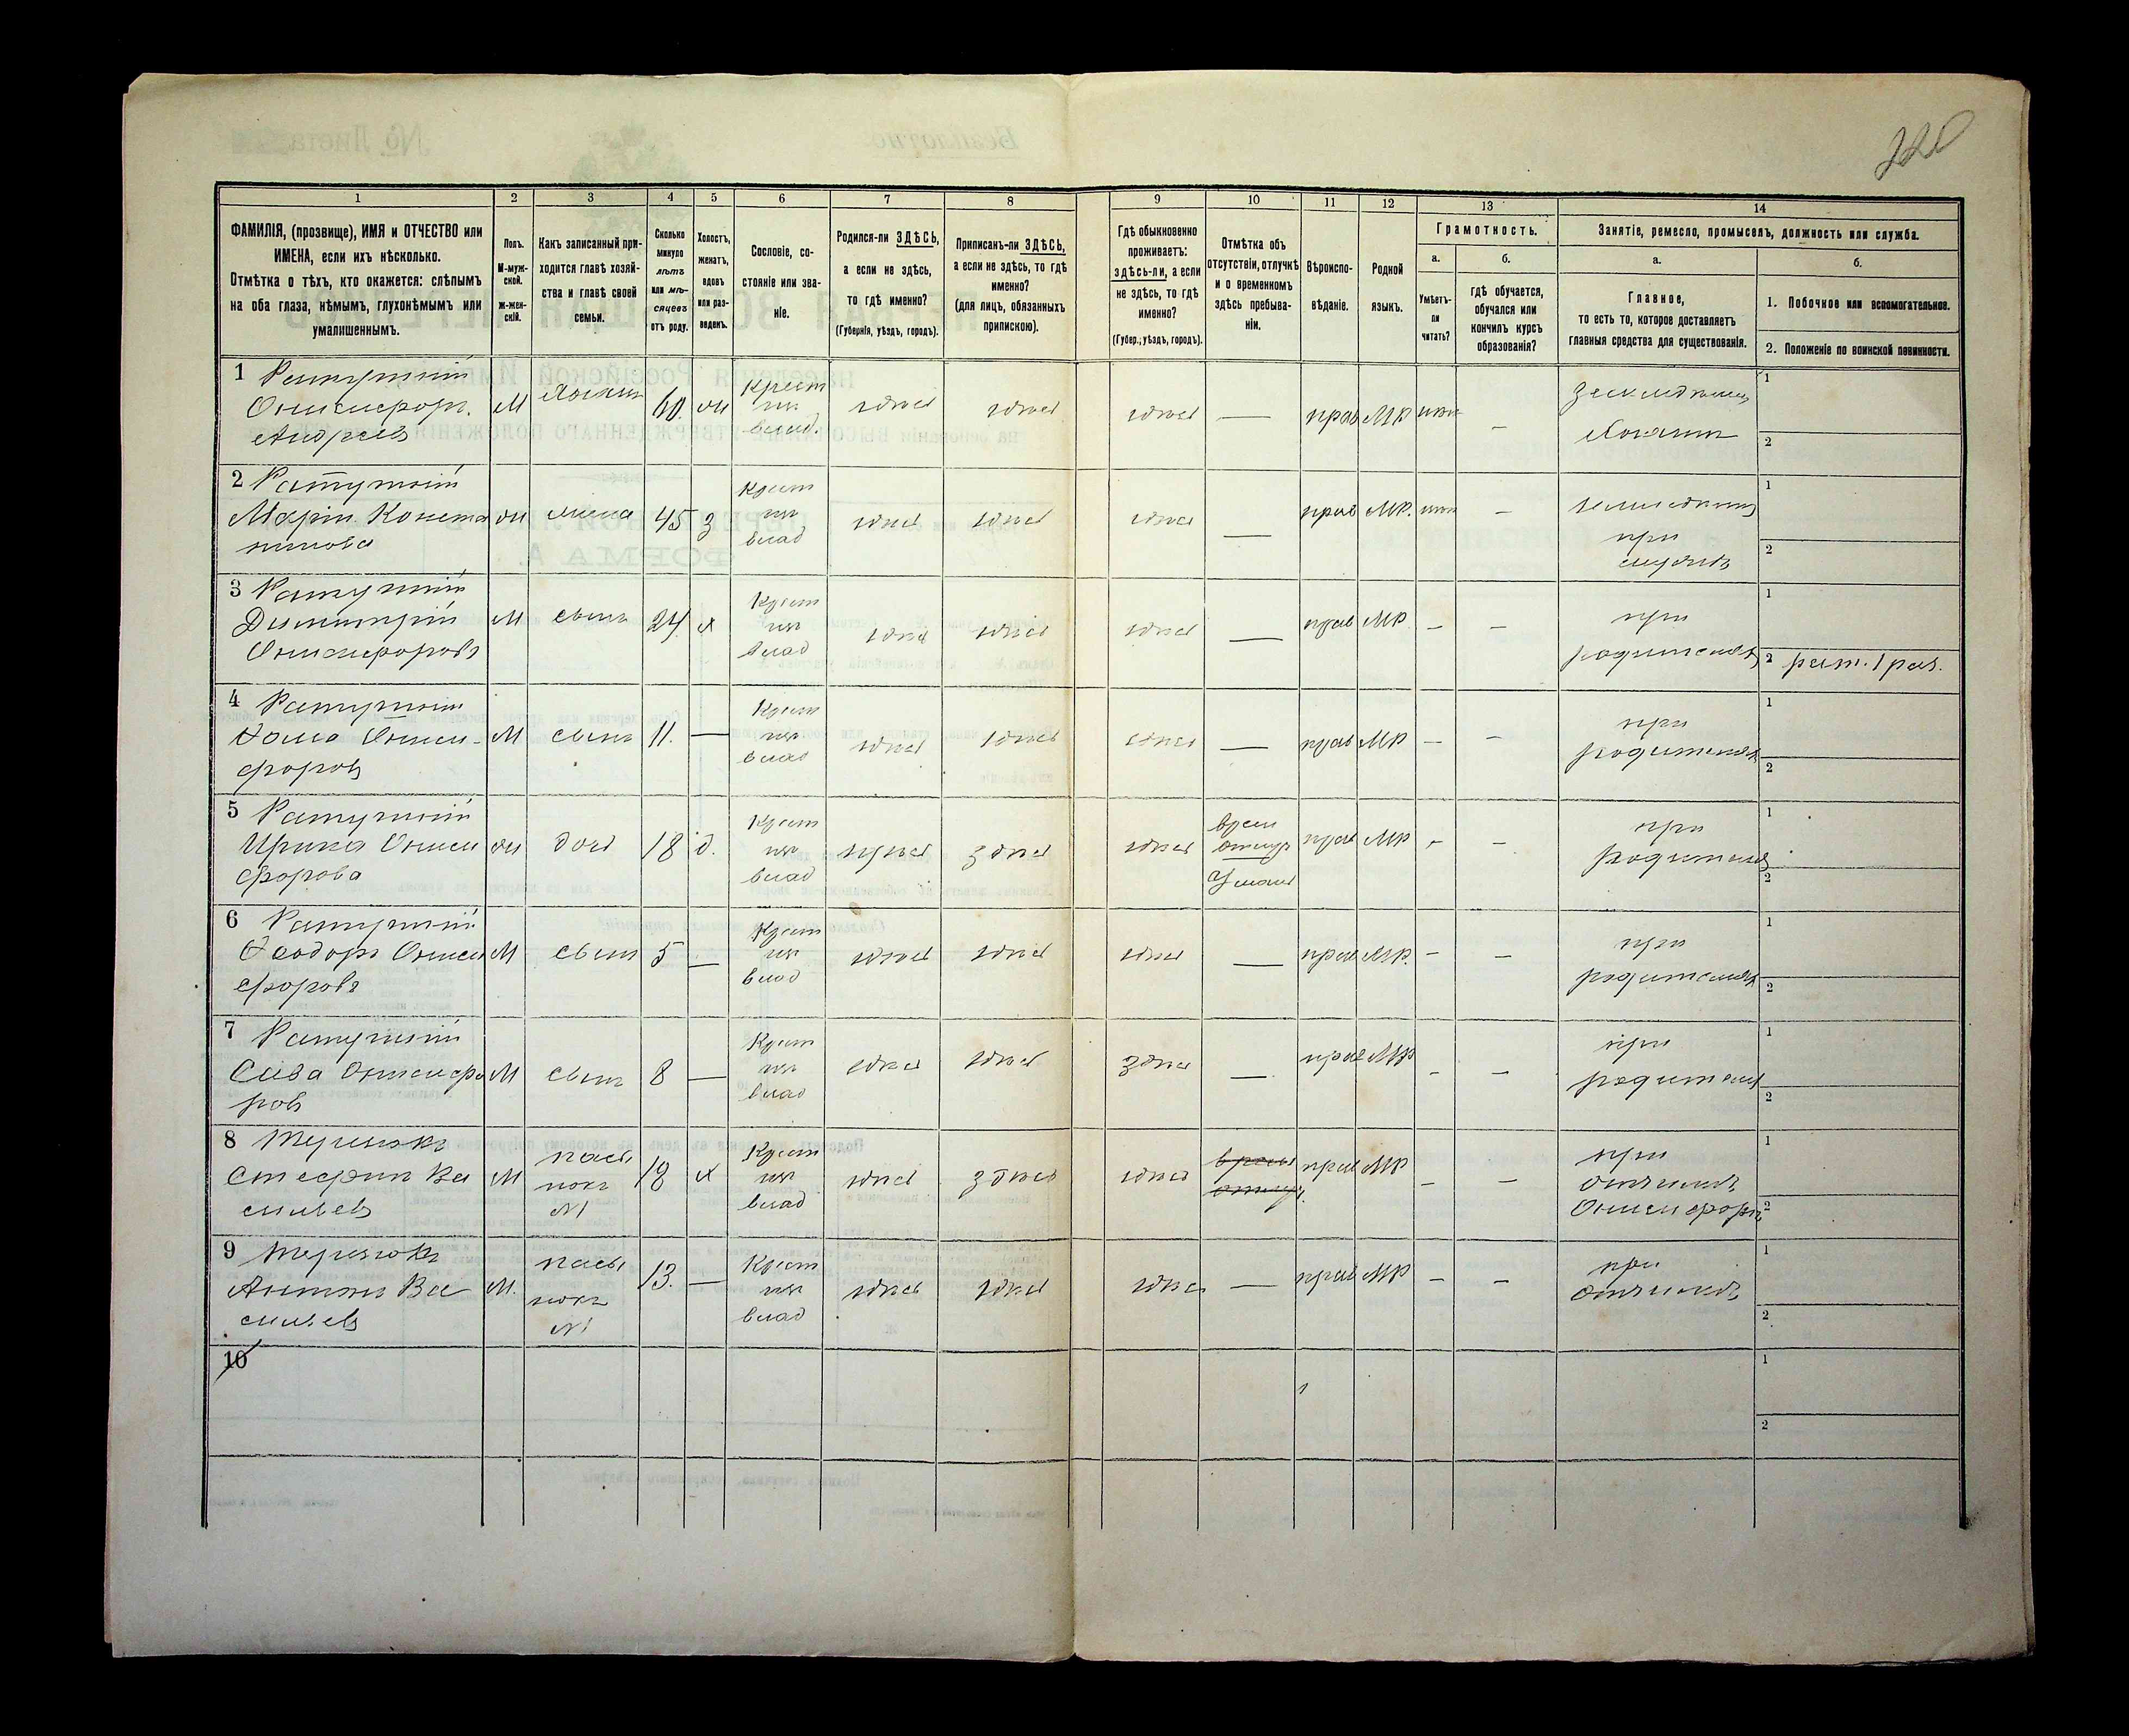 220
1
2
3
4
5
6
7
8
9
10
11
12
13
14
ФАМИЛІЯ, (прозвище), ИМЯ и ОТЧЕСТВО или
ИМЕНА, если ихъ нѣсколько.
Отмѣтка о тѣхъ, кто окажется: слѣпымъ
на оба глаза, нѣмымъ, глухонѣмымъ или
умалишеннымъ.
Полъ.
М-муж-
ской.
Ж-жен-
скій.
Какъ записанный при-
ходится главѣ хозяй-
ства и главѣ своей
семьи.
Сколько
минуло
лѣтъ
или мѣ-
сяцевъ
отъ роду.
Холостъ,
женатъ,
вдовъ
или раз-
веденъ.
Сословіе, со-
стояніе или зва-
ніе.
Родился-ли ЗДѢСЬ,
а если не здѣсь,
то гдѣ именно?
(Губернія, уѣздъ, городъ).
Приписанъ-ли ЗДѢСЬ,
а если не здѣсь, то гдѣ
именно?
(для лицъ, обязанныхъ
припискою).
Гдѣ обыкновенно
проживаетъ:
здѣсь-ли, а если
не здѣсь, то гдѣ
именно?
(Губер., уѣздъ, городъ).
Отмѣтка объ
отсутствіи, отлучкѣ
и о временномъ
здѣсь пребыва-
ніи.
Вѣроиспо-
вѣданіе.
Родной
языкъ.
Грамотность.
а.
Умѣетъ-
ли
читать?
б.
гдѣ обучается,
обучался или
кончилъ курсъ
образованія?
Занятіе, ремесло, промыселъ, должность или служба.
а.
Главное,
то есть то, которое доставляетъ
главныя средства для существованія.
б.
1. Побочное или вспомогательное.
2. Положеніе по воинской повинности.
1 Ратушній
Онисифоръ
Андреев
М
хозяин
60
ж
Крест
влад.
здѣсь
здѣсь
здѣсь
—
прав
МР
—
Хозяин
1
2
2 Ратушній
Марія Конста
нинова
ж
жена
45
З
Крест
влад
здѣсь
здѣсь
здѣсь
—
прав
МР.
—
при
мужѣ
1
2
3 Ратушній
Димитрій
Онисифоровъ
М
сынъ
24
х
Крест
влад
здѣсь
здѣсь
здѣсь
—
прав
МР.
—
—
при
родителях
1
2 рат. 1 раз.
4 Ратушній
Фома Ониси-
форов
М
сынъ
11.
—
Крест
влад
здѣсь
здѣсь
здѣсь
—
прав
МР
—
—
при
родителях
1
2
5 Ратушній
Ирина Ониси
форова
ж
дочь
18
д.
Крест
влад
здѣсь
здѣсь
врем
отлуч
Умань
прав
МР
—
—
при
родителях
1
2
6 Ратушній
Феодоръ Ониси
форовъ
М
сынъ
5
—
Крест
влад
здѣсь
здѣсь
здѣсь
—
прав
МР.
—
—
при
родителях
1
2
7 Ратушній
Сава Онисифо
ров
М
сынъ
8
—
Крест
влад
здѣсь
здѣсь
здѣсь
—
прав
МР
—
—
при
родителях
1
2
8
Стефан Ва
сильев
М
пасы
нокъ
№1
18
х
Крест
влад
здѣсь
здѣсь
здѣсь
врем
отлуч.
прав
МР
—
—
при
отчимѣ
Онисифорѣ
1
2
9
Антон Ва
сильев
М.
пасы
нокъ
№1
13.
—
Крест
влад
здѣсь
здѣсь
здѣсь
—
прав
МР
—
—
при
отчимѣ
1
2
10
1
2